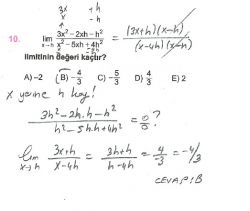 3x -h
x -h
10. lim x→h 3x² - 2xh - h² / x² - 5xh + 4h² = (3x+h)(x-h) / (x-4h)(x-h)
limitinin değeri kaçtır?
A) -2 B) -4/3 C) -5/3 D) 4/3 E) 2
x yerine h koy!
3h² - 2h.h - h² / h² - 5h.h + 4h² = 0/0 ?
lim x→h 3x+h / x-4h = 3h+h / h-4h = 4/-3 = -4/3
CEVAP: B